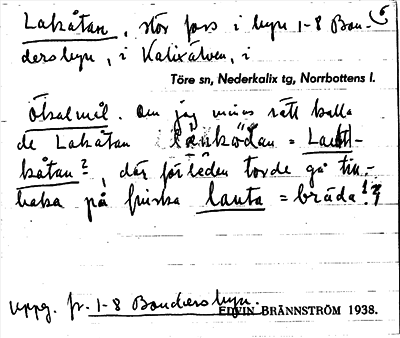 Lakåtan, stor fors i byn 1-8 Bon- 6
dersbyn, i Kalixälven, i
Töre sn, Nederkalix tg, Norrbottens l.
Ökalmål. Om jag minns rätt kalla
de Lakåtan länkådan = Laut-
kåtan?, där förleden torde gå till-
baka på finska lauta = bräda!?
uppg. fr. 1-8 Bondersbyn.
EDVIN BRÄNNSTRÖM 1938.